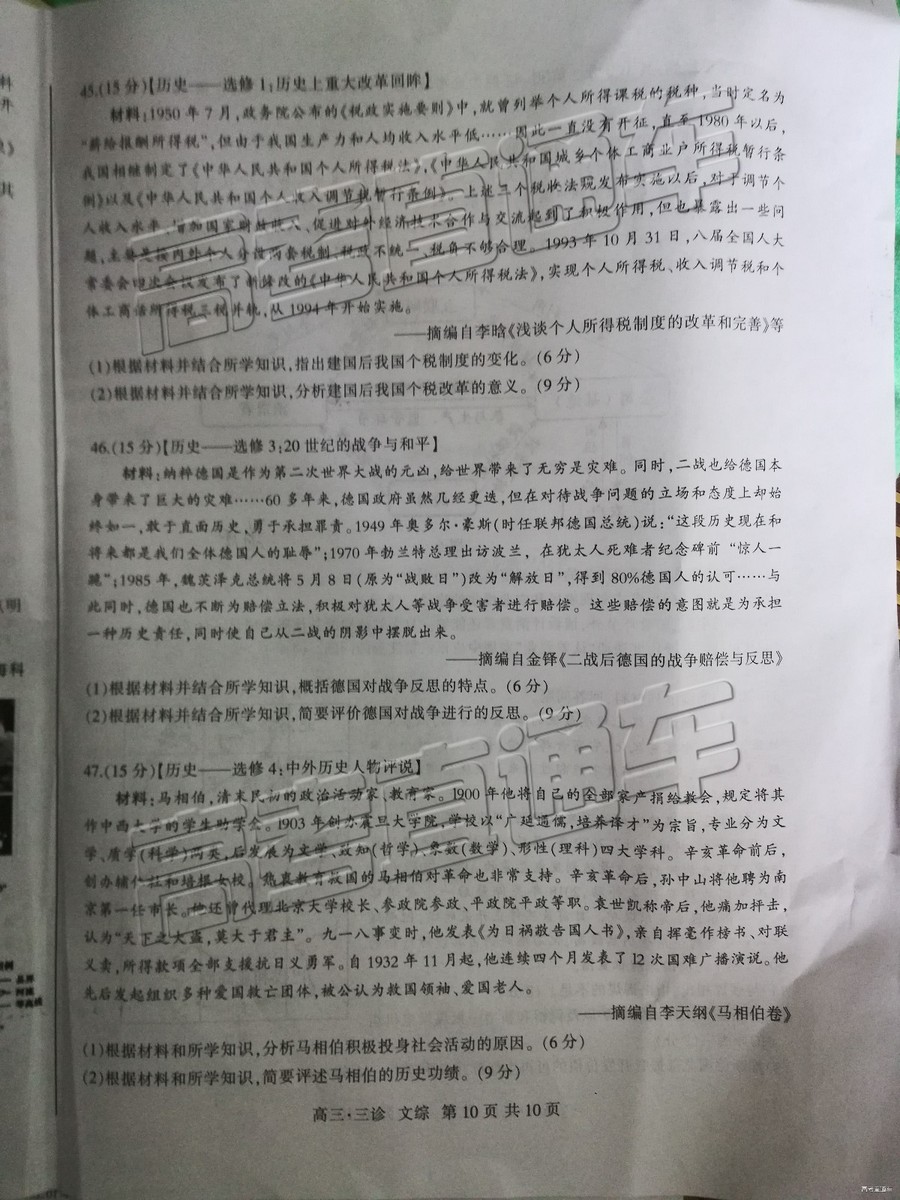 料
开
息》
其
45.(15分)【历史——选修1:历史上重大改革回眸】
材料:1950年7月,政务院公布的《税政实施要则》中,就曾列举个人所得课税的税种,当时定名为
“薪给报酬所得税”,但由于我国生产力和人均收入水平低……因此一直没有开征,直至1980年以后,
我国相继制定了《中华人民共和国个人所得税法》,《中华人民共和国城乡个体工商业户所得税暂行条
例》以及《中华人民共和国个人收入调节税暂行条例》。上述三个税收法规发布实施以后,对于调节个
人收入水平、增加国家财政收入、促进对外经济技术合作与交流起到了积极作用,但也暴露出一些问
题,主要是按内外个人分设两套税制、税政不统一、税负不够合理。1993年10月31日,八届全国人大
常委会四次会议发布了新修改的《中华人民共和国个人所得税法》,实现个人所得税、收入调节税和个
体工商户所得税三税并轨,从1994年开始实施。
——摘编自李晗《浅谈个人所得税制度的改革和完善》等
(1)根据材料并结合所学知识,指出建国后我国个税制度的变化。(6分)
(2)根据材料并结合所学知识,分析建国后我国个税改革的意义。(9分)
46.(15分)【历史——选修3:20世纪的战争与和平】
材料:纳粹德国是作为第二次世界大战的元凶,给世界带来了无穷是灾难。同时,二战也给德国本
身带来了巨大的灾难……60多年来,德国政府虽然几经更迭,但在对待战争问题的立场和态度上却始
终如一,敢于直面历史,勇于承担罪责。1949年奥多尔·豪斯(时任联邦德国总统)说:“这段历史现在和
将来都是我们全体德国人的耻辱”;1970年勃兰特总理出访波兰,在犹太人死难者纪念碑前“惊人一
跪”;1985年,魏茨泽克总统将5月8日(原为“战败日”)改为“解放日”,得到80%德国人的认可……与
此同时,德国也不断为赔偿立法,积极对犹太人等战争受害者进行赔偿。这些赔偿的意图就是为承担
一种历史责任,同时使自己从二战的阴影中摆脱出来。
——摘编自金铎《二战后德国的战争赔偿与反思》
(1)根据材料并结合所学知识,概括德国对战争反思的特点。(6分)
(2)根据材料并结合所学知识,简要评价德国对战争进行的反思。(9分)
47.(15分)【历史——选修4:中外历史人物评说】
材料:马相伯,清末民初的政治活动家、教育家。1900年他将自己的全部家产捐给教会,规定将其
作中西大学的学生助学金。1903年创办震旦大学院,学校以“广延通儒,培养译才”为宗旨,专业分为文
学、质学(科学)两类,后发展为文学、致知(哲学)、象数(数学)、形性(理科)四大学科。辛亥革命前后,
创办辅仁社和培根女校。热衷教育救国的马相伯对革命也非常支持。辛亥革命后,孙中山将他聘为南
京第一任市长。他还曾代理北京大学校长、参政院参政、平政院平政等职。袁世凯称帝后,他痛加抨击,
认为“天下之大盗,莫大于君主”。九一八事变时,他发表《为日祸敬告国人书》,亲自挥毫作榜书、对联
义卖,所得款项全部支援抗日义勇军。自1932年11月起,他连续四个月发表了12次国难广播演说。他
先后发起组织多种爱国救亡团体,被公认为救国领袖、爱国老人。
——摘编自李天纲《马相伯卷》
(1)根据材料和所学知识,分析马相伯积极投身社会活动的原因。(6分)
(2)根据材料和所学知识,简要评述马相伯的历史功绩。(9分)
高三·三诊 文综 第10页共10页
高考直通车
高考直通车